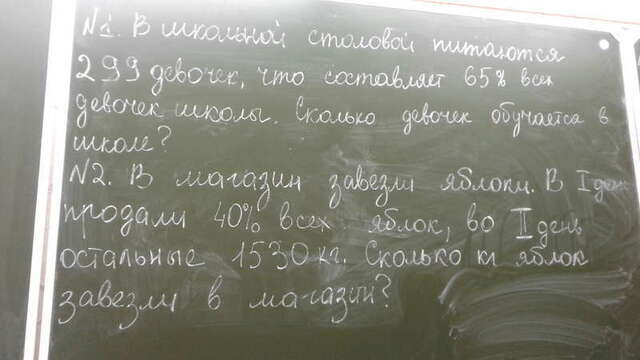 №1. В школьной столовой питаются
299 девочек, что составляет 65% всех
девочек школы. Сколько девочек обучается в
школе?
№2. В магазин завезли яблоки. В I день
продали 40% всех яблок, во II день
остальные 1530 кг. Сколько кг яблок
завезли в магазин?